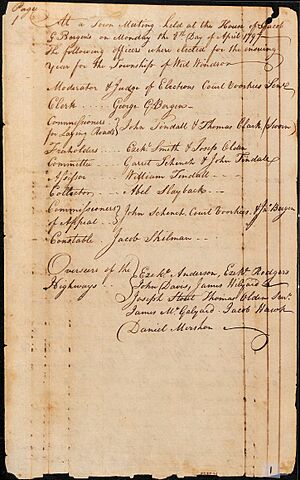 Page
1
At a Town Meeting held at the House of Jacob
G Bergen's on Monday the 8th Day of April 1797
The following officers where elected for the ensuing
year for the Township of West Windsor
Moderator & Judge of Elections Court Voorhies Senr
Clerk George G Bergen
Commissioners for Laying Roads John Tindall & Thomas Clark
Freholders Ezekl Smith & Joseph Olden
Committee Garret Schenck & John Tindall
Assessor William Tindall
Collector Abel Slayback
Commissioners of Appeal John Schenck, Court Voorhies, & Bergen
Constable Jacob Skilman
Overseers of the Highways Ezekl Anderson, Ezekl Rodgers
John Davis, James Hilyard
Joseph Stout Thomas Olden Junr
James McGalyard Jacob Hawk
Daniel Mershon
1